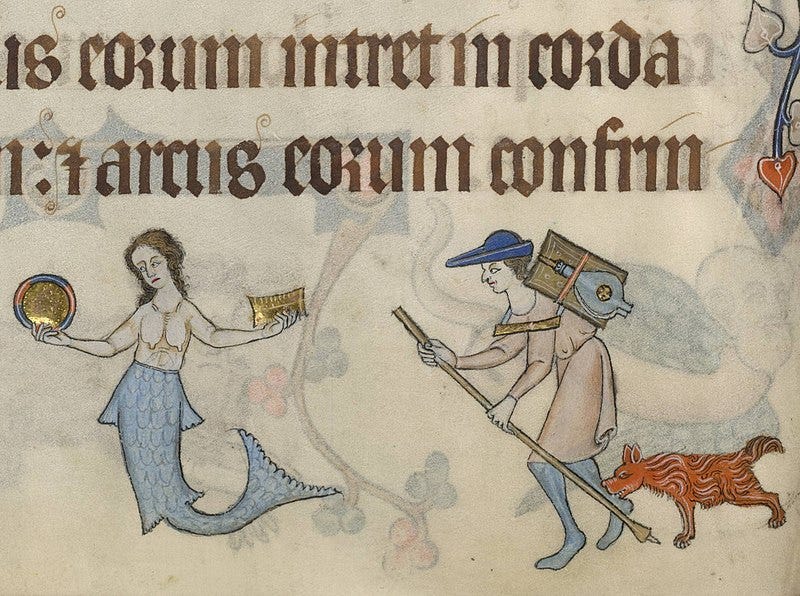 us eorum intret in corda
m: ⁊ arcus eorum confrin